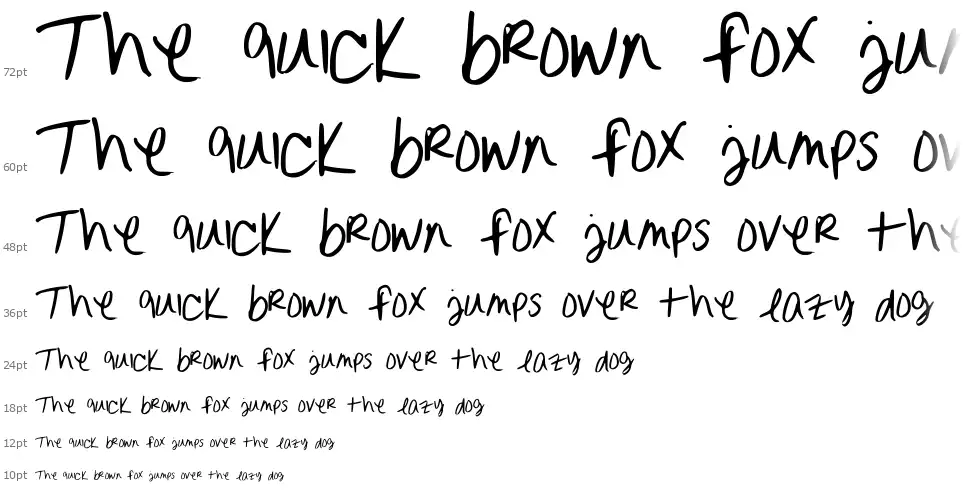 72pt The quick brown fox ju
60pt The quick brown fox jumps ov
48pt The quick brown fox jumps over the
36pt The quick brown fox jumps over the lazy dog
24pt The quick brown fox jumps over the lazy dog
18pt The quick brown fox jumps over the lazy dog
12pt The quick brown fox jumps over the lazy dog
10pt The quick brown fox jumps over the lazy dog